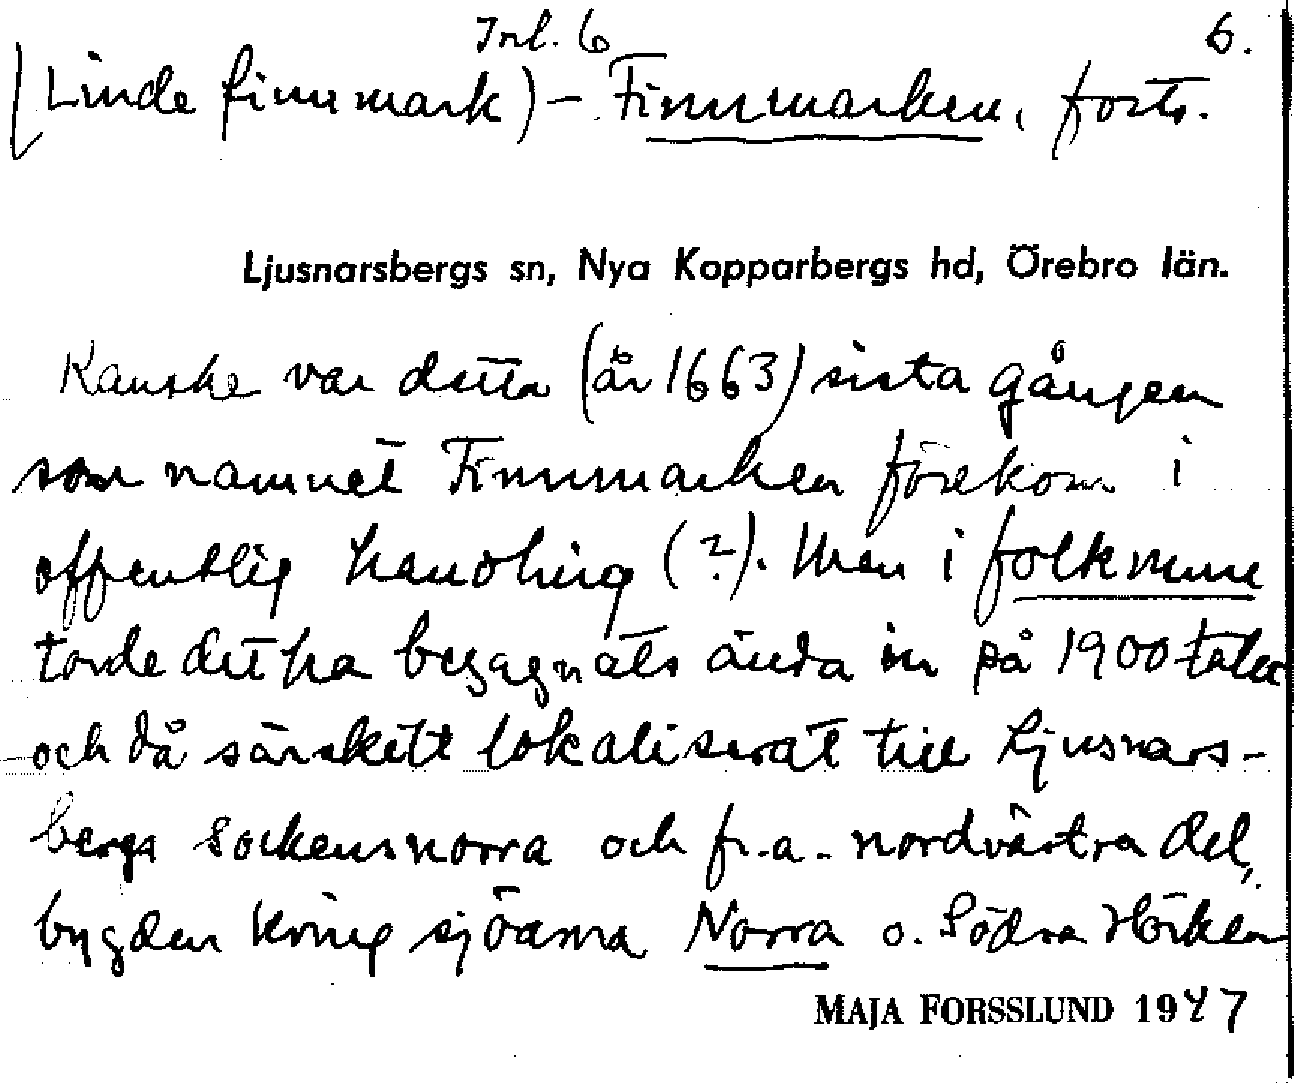 Inl. 6 6.
(Linde finnmark) – Finnmarken, forts.
Ljusnarsbergs sn, Nya Kopparbergs hd, Örebro län.
Kanske var detta (år 1663) sista gången
som namnet Finnmarken förekom i
offentlig handling (?). Men i folkmun
torde det ha begagnats ända in på 1900 talet
och då särskilt lokaliserat till Ljusnars-
bergs sockens norra och fr.a. nordvästra del,
bygden kring sjöarna Norra o. Södra Hörken
MAJA FORSSLUND 1947